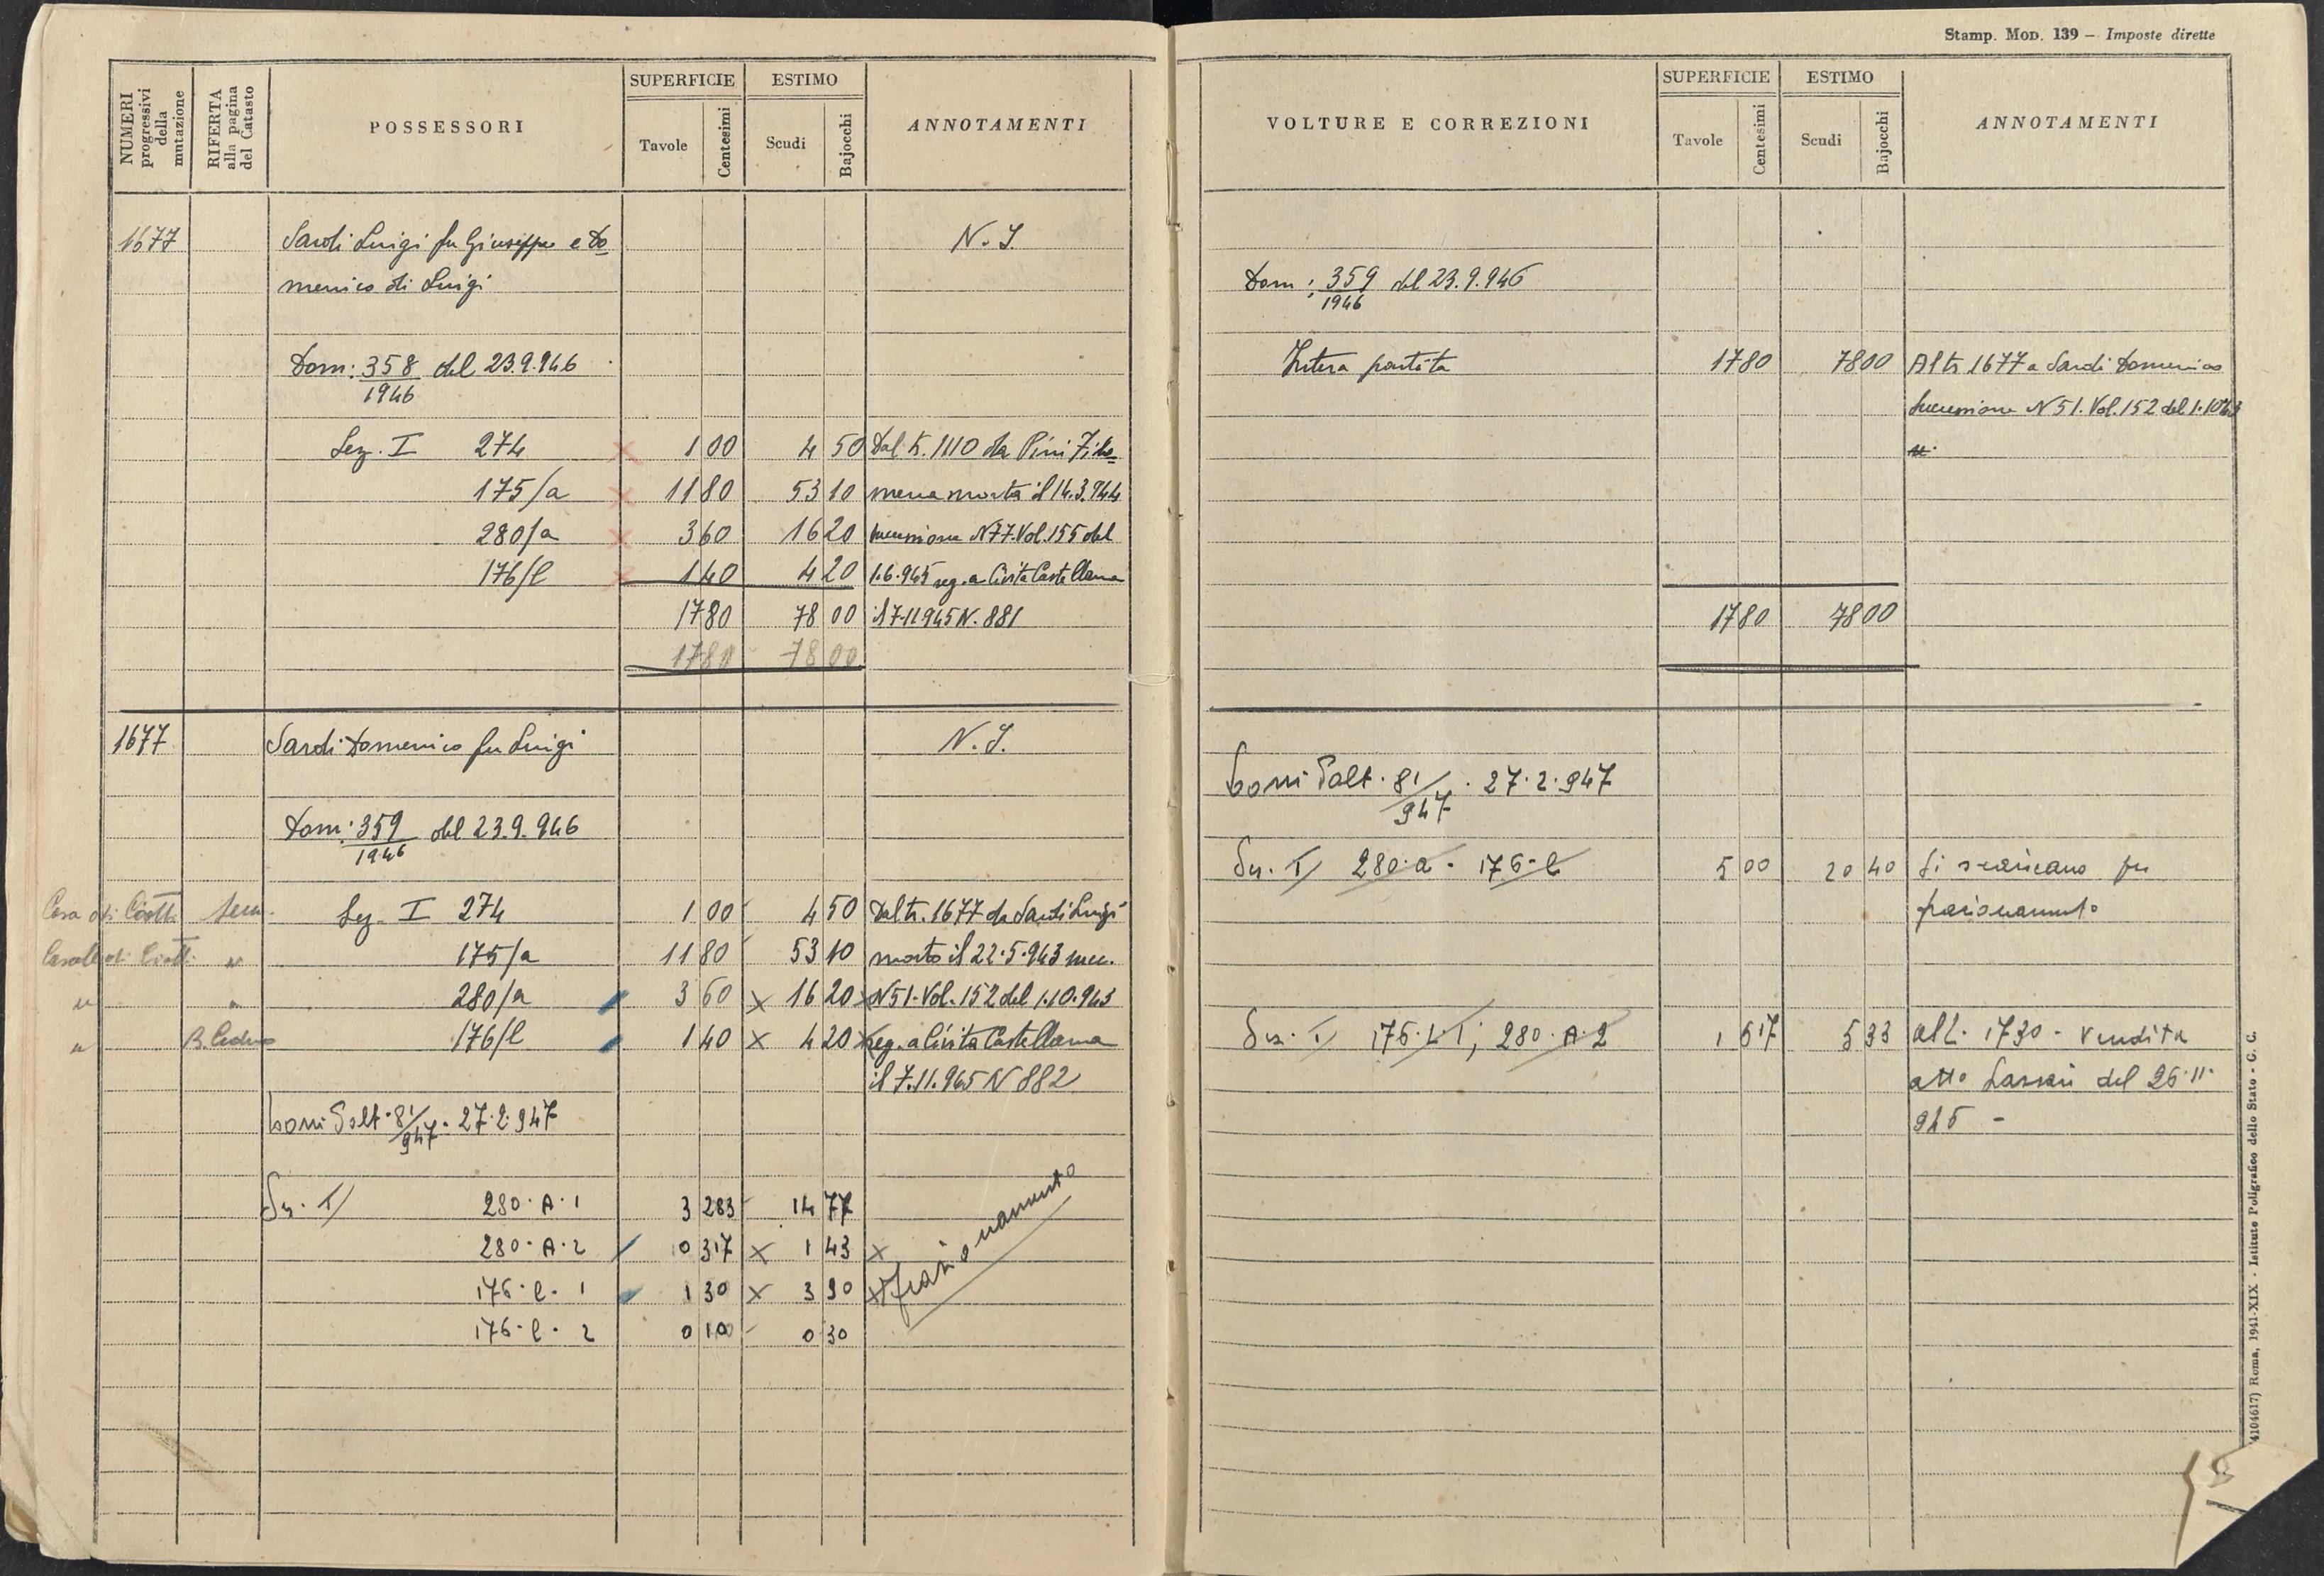 NUMERI progressivi della mutazione
RIFERTA alla pagina del Catasto
POSSESSORI
SUPERFICIE
Tavole Centesimi
ESTIMO
Scudi Bajocchi
ANNOTAMENTI
1677 Sardi Luigi fu Giuseppe e Do= N. I.
menico di Luigi
Dom: 358/1946 del 23.9.946
Sez. I 274 1 00 4 50 Dal N. 1110 da Pini Filo=
175/a 11 80 53 10 mena morta il 14.3.944
280/a 3 60 16 20 successione N77. Vol. 155 del
176/l 1 40 4 20 1.6.945 reg. a Civita Castellana
17 80 78 00 il 7.11.945 N. 881
17 80 78 00
1677 Sardi Domenico fu Luigi N. I.
Dom: 359/1946 del 23.9.946
Sem. Sez. I 274 1 00 4 50 Dal tr. 1677 da Sardi Luigi
" 175/a 11 80 53 10 morto il 22.5.943 succ.
" " 280/a 3 60 x 16 20 x N51. Vol. 152 del 1.10.943
" B. Ceduo 176/l 1 40 x 4 20 x reg. a Civita Castellana
il 7.11.945 N 882
81/947 . 27.2.947
Sez. I/ 280.A.1 3 283 14 77
280.A.2 0 317 x 1 43 x
176.l.1 1 30 x 3 90 x
176.l.2 0 10 0 30
frazionamento
Stamp. Mod. 139 – Imposte dirette
VOLTURE E CORREZIONI
SUPERFICIE
Tavole Centesimi
ESTIMO
Scudi Bajocchi
ANNOTAMENTI
Dom: 359/1946 del 23.9.946
Intera partita 17 80 78 00 Al tr. 1677 a Sardi Domenico
successione N51. Vol. 152 del 1.10.43
17 80 78 00
81/947 . 27.2.947
Sez. I/ 280.a - 176.l 5 00 20 40 Si scaricano per
frazionamento
Sez. I/ 176.L.1; 280.A.2 1 617 5 33 all. 1730 - vendita
atto del 26.11.
945 -
41046177) Roma, 1941-XIX - Istituto Poligrafico dello Stato - G. C.